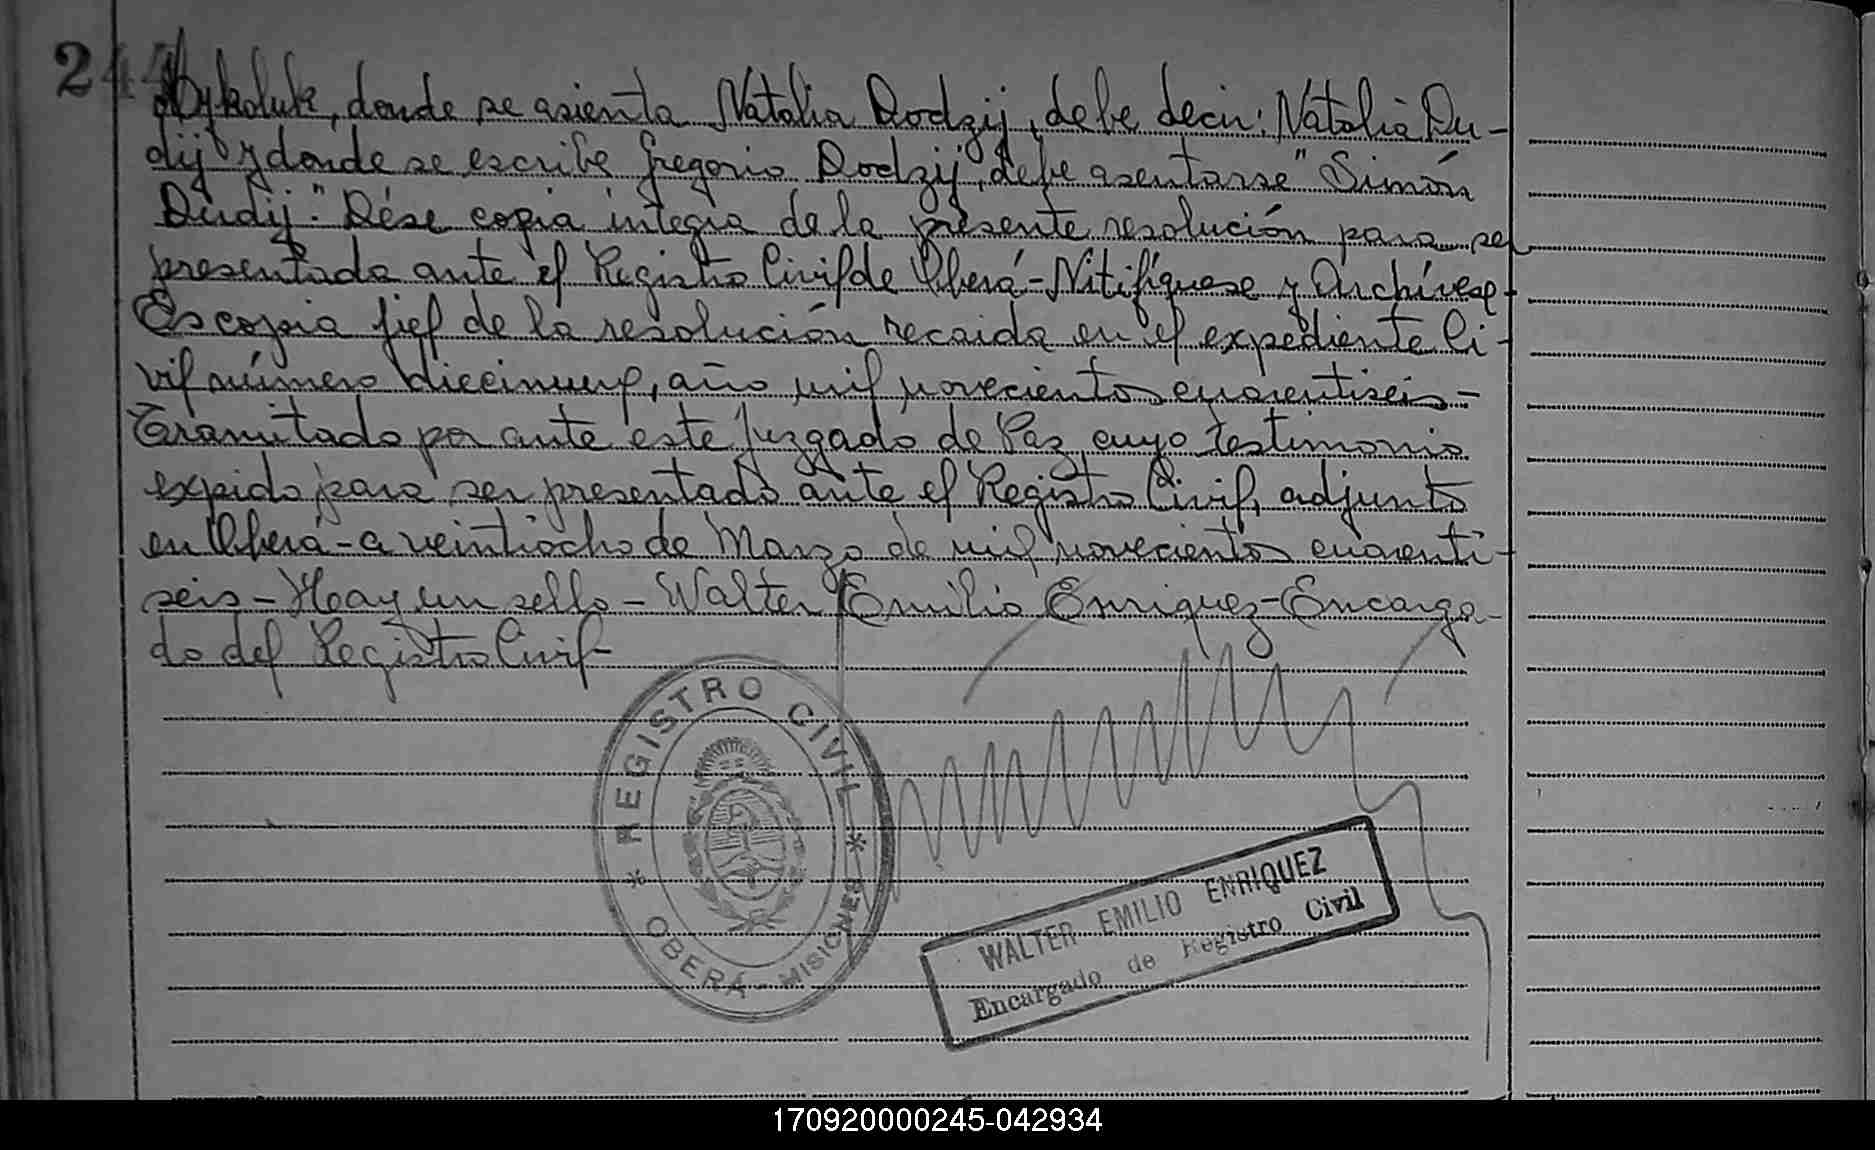 24
Dykoluk, donde se asienta Natalia Dodzij, debe decir: Natalia Du-
dij y donde se escribe Gregorio Dodzij, debe asentarse "Simón
Dudij." Dése copia integra de la presente resolución para ser
presentada ante el Registro Civil de Oberá - Nitifíquese y Archívese -
Es copia fiel de la resolución recaida en el expediente Ci-
vil número diecinueve, año mil novecientos cuarentiseis -
Tramitado por ante este Juzgado de Paz, cuyo testimonio
expido para ser presentado ante el Registro Civil, adjunto
en Oberá - a veintiocho de Marzo de mil novecientos cuarenti-
seis - Hay un sello - Walter Emilio Enriquez - Encarga-
do del Registro Civil -
* REGISTRO CIVIL *
OBERÁ - MISIONES
WALTER EMILIO ENRIQUEZ
Encargado de Registro Civil
170920000245-042934